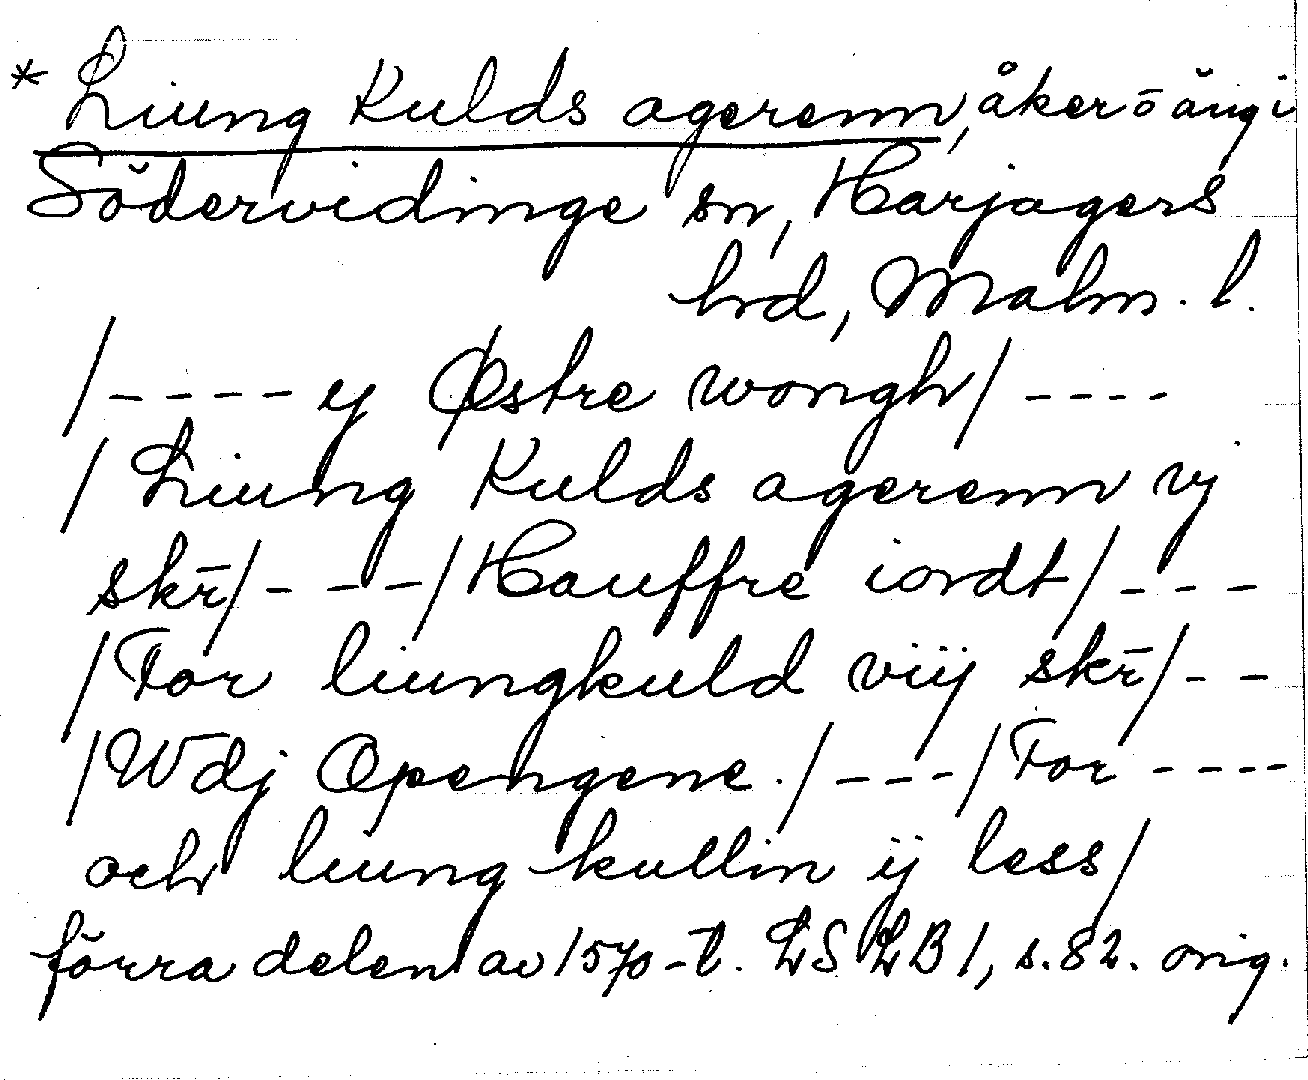 * Liung Kulds agerenn, åker o äng i
Södervidinge sn, Harjagers
hrd, Malm. l.
/---- y Østre wongh/ ----
/ Liung Kulds agerenn vj
skr̄/ - - - / Hauffre iordt/ - - -
/ For liungkuld viij skr̄/ - -
/ Wdj Opengene. / - - - / For ----
och liung kullin ij less/
förra delen av 1570-t. LS LB 1, s. 82. orig.